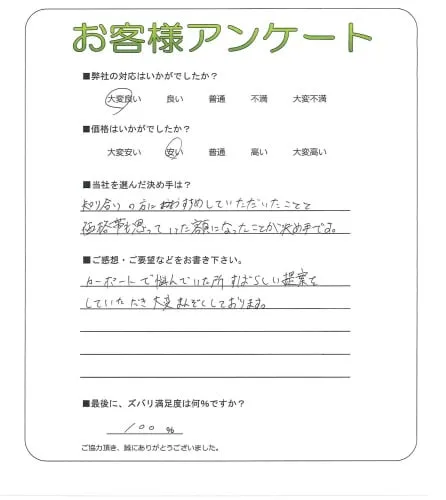 お客様アンケート
■弊社の対応はいかがでしたか？
大変良い 良い 普通 不満 大変不満
■価格はいかがでしたか？
大変安い 安い 普通 高い 大変高い
■当社を選んだ決め手は？
知り合いの方におすすめしていただいたことと
価格帯も思っていた額になったことが決め手です。
■ご感想・ご要望などをお書き下さい。
カーポートで悩んでいた所すばらしい提案を
していただき大変まんぞくしております。
■最後に、ズバリ満足度は何％ですか？
100 %
ご協力頂き、誠にありがとうございました。